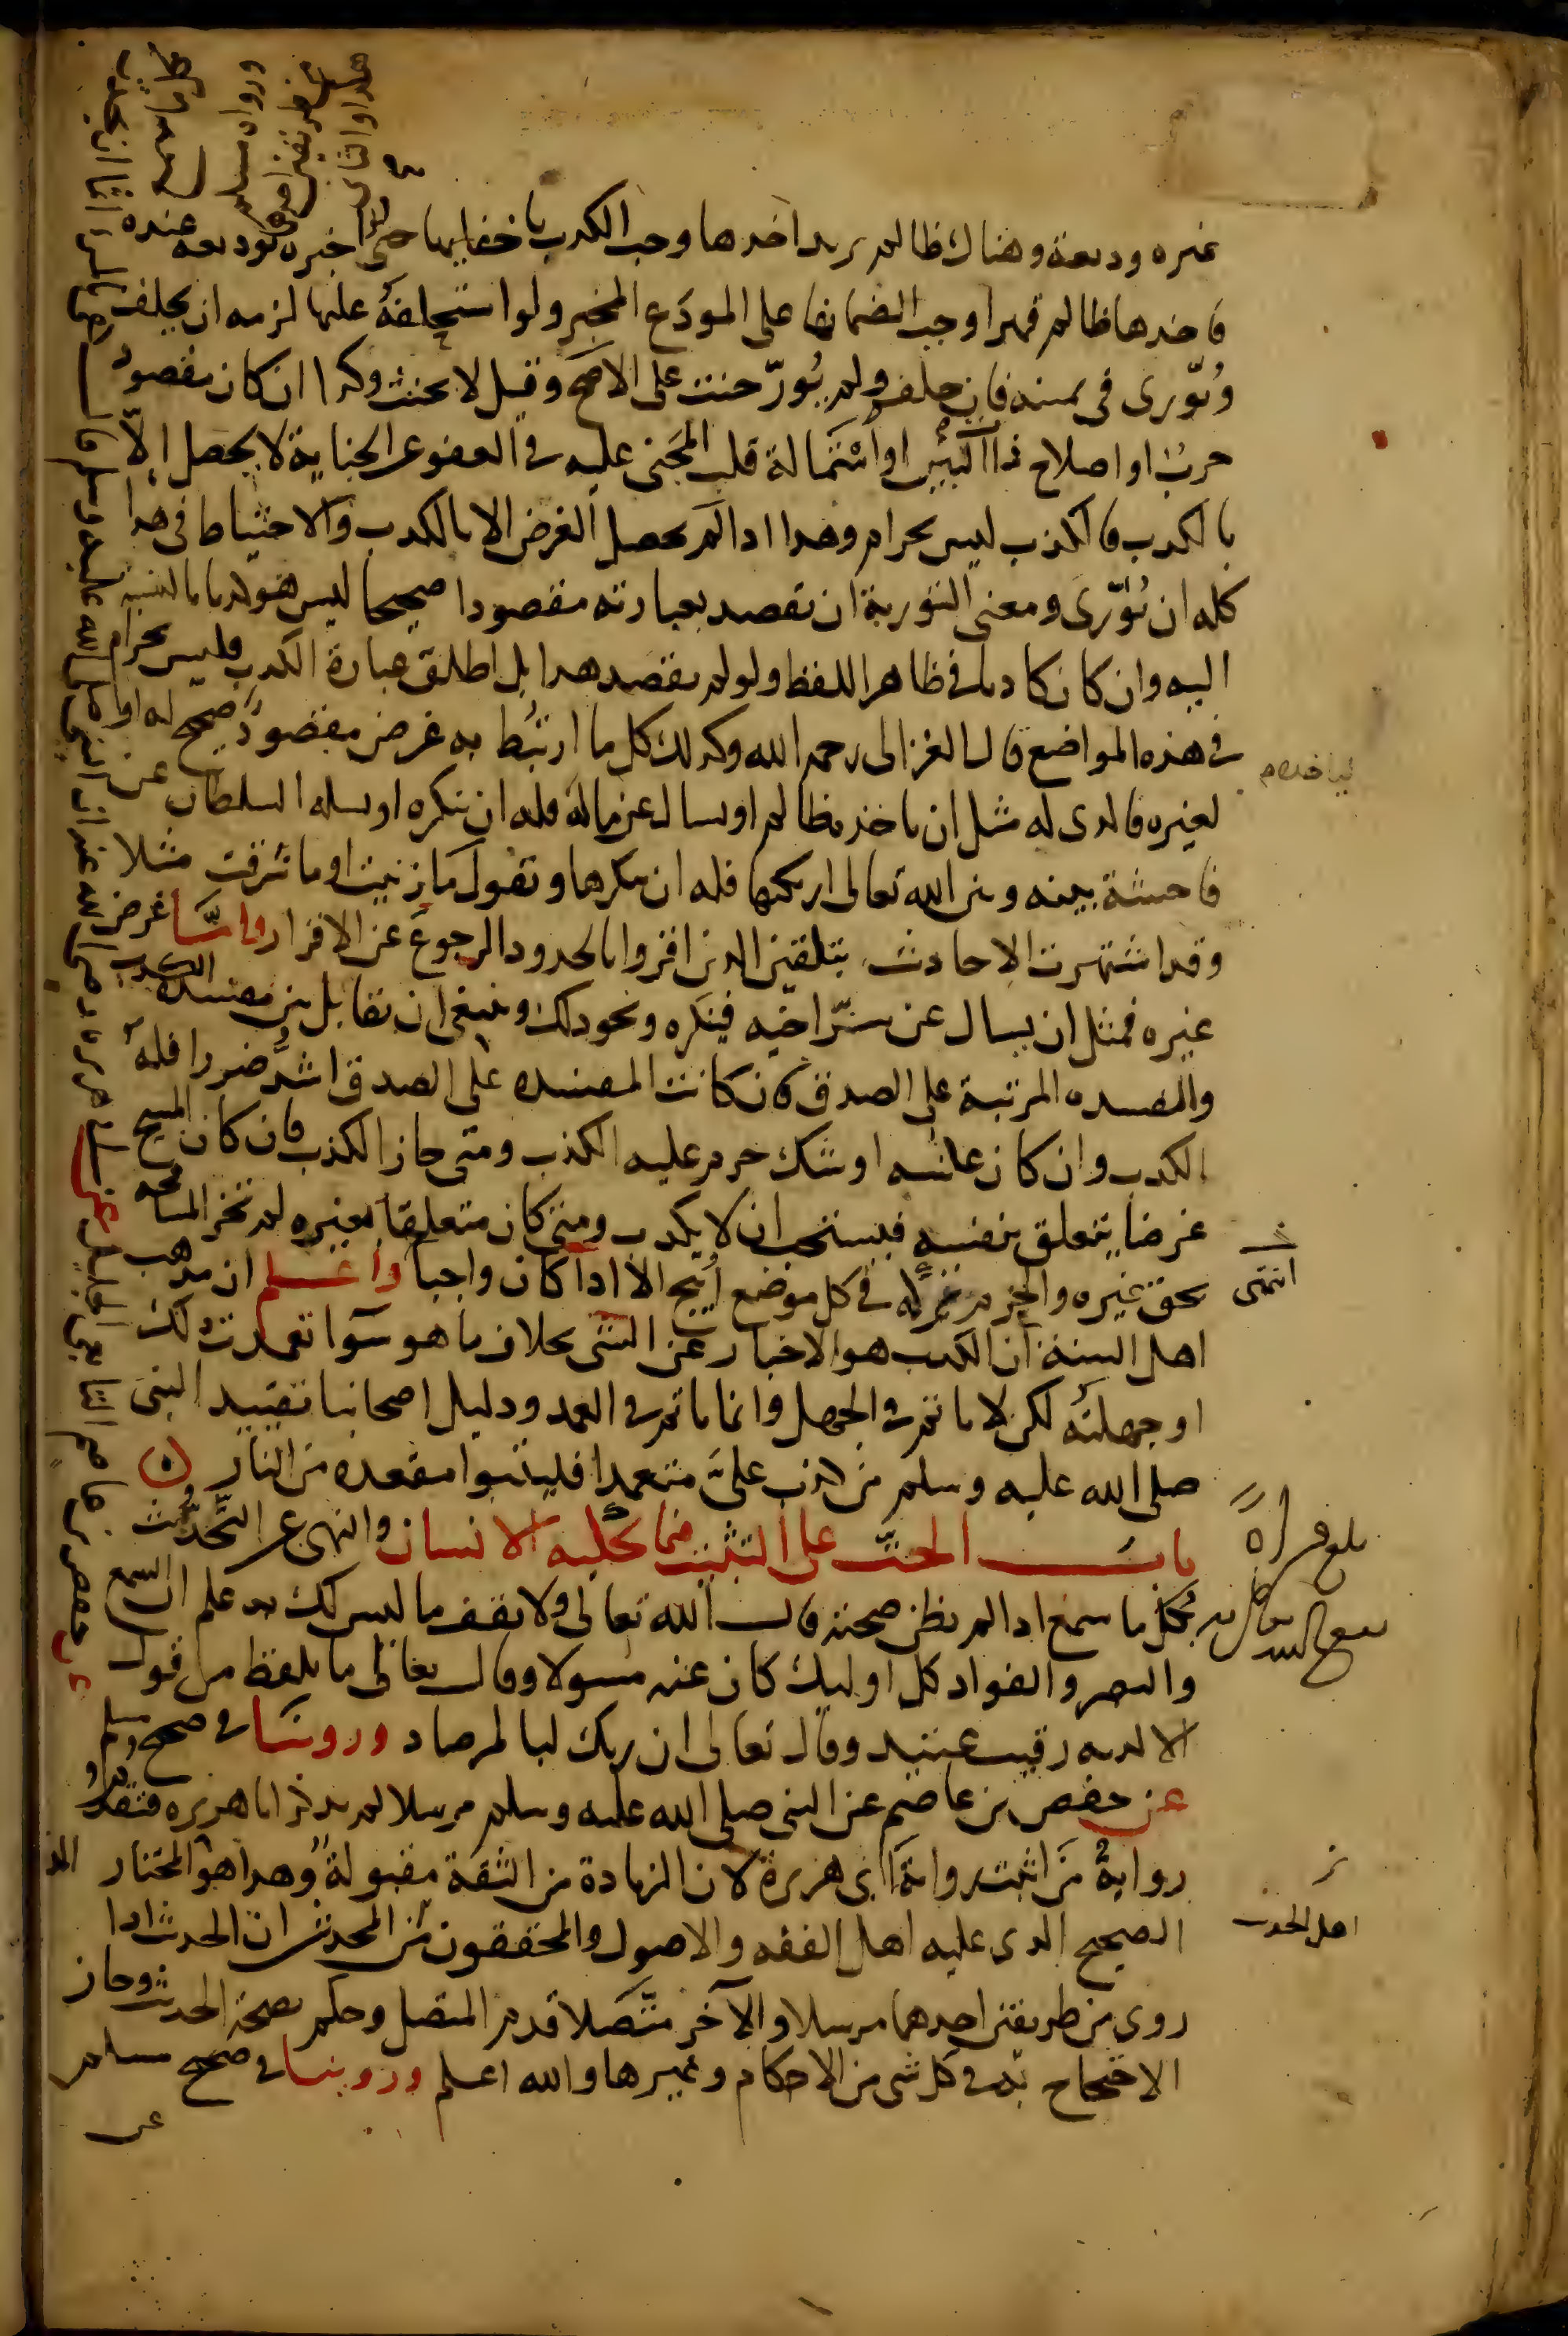 غيره وديعة وهناك ظالم يريد اخذها وجب الكذب باخفايها حتى لو اخبره بوديعه عنده
فاخدها ظالم قهرا وجب الضمانها على المودَع المخبر ولو استحلفهُ عليها لزمه ان يحلف
ويُوّرى فى يمينه فان حلف ولم يُورّ حنث على الاصح وقيل لا يحنث وكدا ان كان مقصود
حربٍ او اصلاح ذات البين او استمالة قلب المجنى عليه فى العفو عن الجناية لا يحصل الا
بالكدب فالكذب ليس بحرام وهدا ادا لم يحصل الغرض الا بالكدب والاحتياط فى هدا
كله ان يُوّرى ومعنى التورية ان تقصد بعبارته مقصودا صحيحا ليس هو كادبا بالنسبه
اليه وان كان كادبا فى ظاهر اللفظ ولو لم يقصد هدا بل اطلق عبارة الكدب فليس بحرام
فى هذه المواضع قال الغزالى رحمه الله وكدلك كل ما ارتبط به غرض مقصودٌ صحيح له او
لغيره فالدى له مثل ان ياخذه ظالم او يساله عن ماله فله ان ينكره او يسله السلطان عن
فاحشة بينه وبين الله تعالى ارتكبها فله ان ينكرها وتقول ما زنيت او ما شرقت مثلا
وقد اشتهرت الاحاديث بتلقين الدين اقروا بالحدود الرجوع عن الاقرار واما غرض
غيره فمثل ان يسال عن سرّ اخيه فينكره ونحو دلك وينبغى ان تقابل بين مفسدة الكدب
والمفسده المرتبة على الصدق فان كانت المفسده على الصدق اشدَّ ضررا فله
الكدب وان كان عكسه او شك حرم عليه الكذب ومتى جاز الكذب فان كان المبيح
غرضا يتعلق بنفسه فيستحب ان لا يكدب ومتى كان متعلقا بغيره لم تجز المسامحه
بحق غيره والحزم تركه فى كل موضع اُبيح الا ادا كان واجبا واعلم ان مدهب
اهل السنة ان الكدب هو الاخبار عن الشى بخلاف ما هو سَوآ تعمدت دلك
او جهلته لكن لا ياثم فى الجهل وانما ياثم فى العمد ودليل اصحابنا تقييد النبى
صلى الله عليه وسلم من كذب علىَّ متعمدا فليتبوا مقعده من النار
باب الحثّ على التثبت فيما يحكيه الانسان والنهى عن التحدّث
بكل ما سمع ادا لم يظن صحته قال الله تعالى ولا تقف ما ليس لك به علم ان السمع
والبصر والفواد كل اوليك كان عنه مسولا وقال تعالى ما يلفظ من قول
الا لديه رقيب عتيد وقال تعالى ان ربك لبالمرصاد وروينا فى صحيح مسلم
عن حفص بن عاصم عن النبى صلى الله عليه وسلم مرسلا لم يدكر ابا هريره فتقدم
روايةُ مَن اثبت رواية ابى هريرة لان الزيادة من الثقة مقبولة وهدا هو المختار
الصحيح الدى عليه اهل الفقه والاصول والمحققون من المحدثين ان الحديث ادا
روى من طريقين احدهما مرسلا والآخر متّصلا قدم المتصل وحكم بصحة الحديث وجاز
الاحتجاج به فى كل شى من الاحكام وغيرها والله اعلم وروينا فى صحيح مسلم
عن
لياخده
انتهى
بلغ قراة
اهل الحديث
عن حفص بن عاصم التابعى الجليل عن ابى هريره رضى الله عنه ان النبى صلى الله عليه وسلم قال